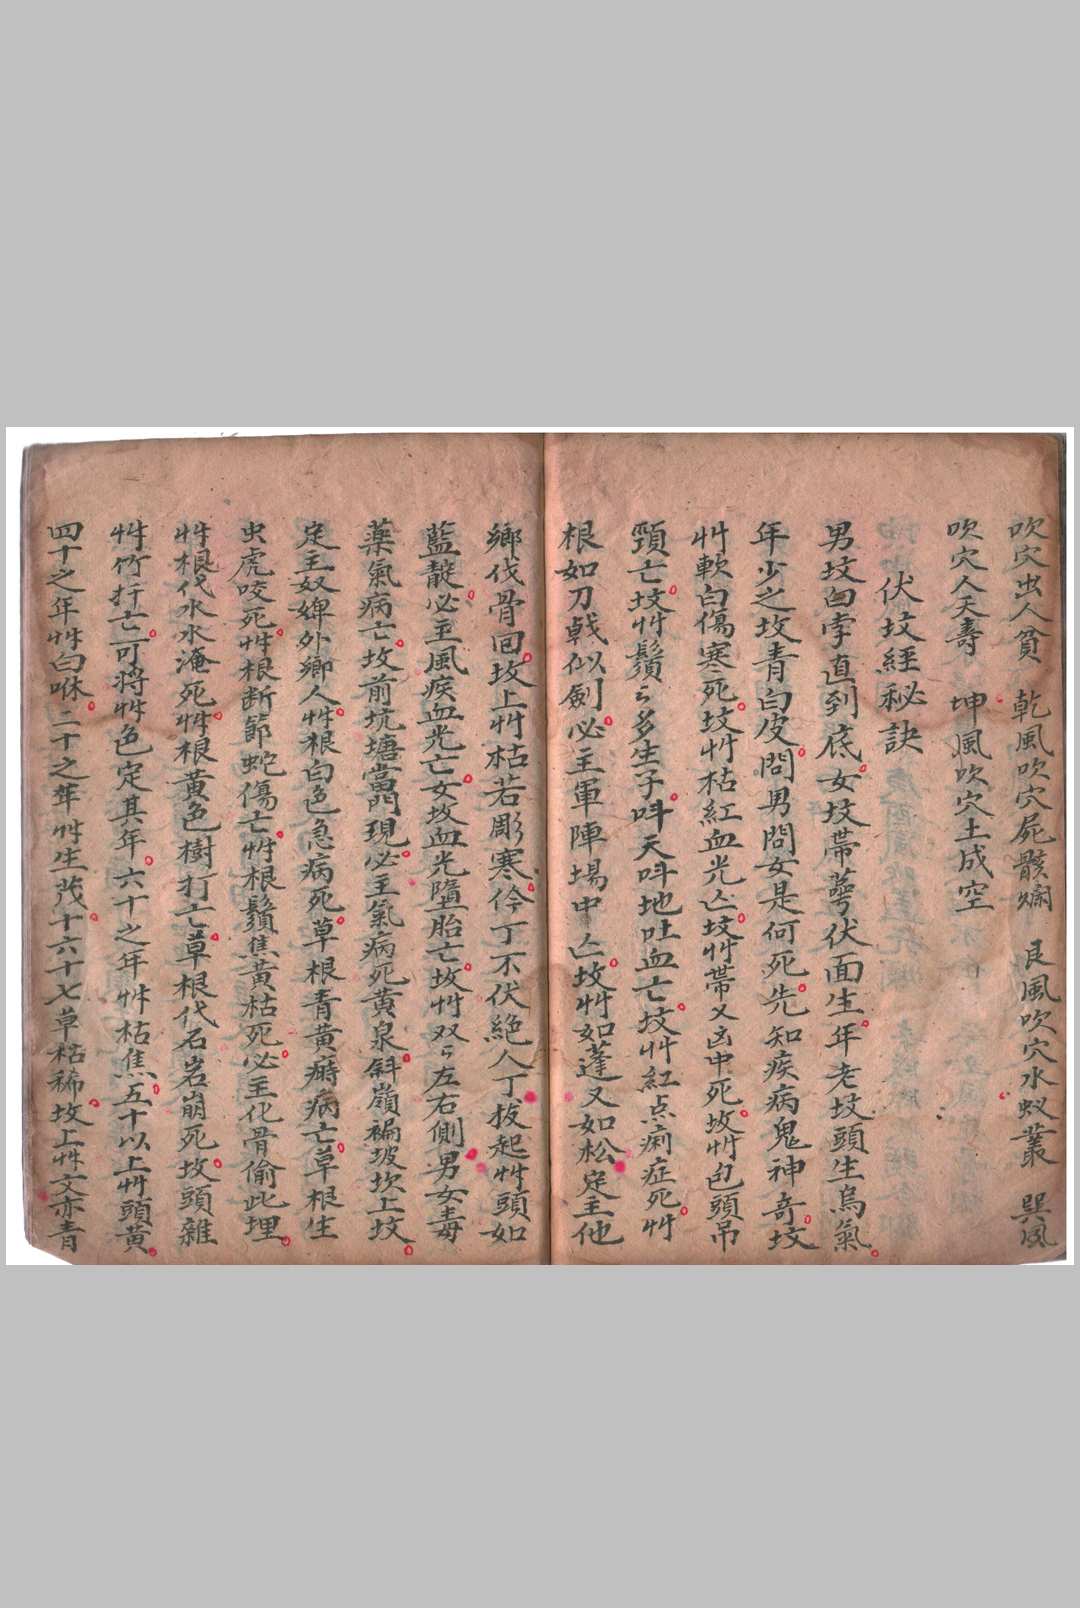 吹穴出人貧　乾風吹穴屍骸爛　艮風吹穴水蚁叢　巽風
吹穴人夭壽　坤風吹穴土成空
伏坟經秘訣
男坟白孛直到底女坟帶蕚伏面生年老坟頭生烏氣
年少之坟青白皮問男問女是何死先知疾病鬼神奇坟
艸軟白傷寒死坟艸枯紅血光亡坟艸帶乂凶中死坟艸包頭吊
頸亡坟艸鬚々多生子呌天呌地吐血亡坟艸紅点痢症死艸
根如刀戟似劍必主軍陣場中亡坟艸如蓬又如松定主他
鄉伐骨回坟上艸枯若彫寒伶丁不伏絶人丁拔起艸頭如
藍靛必主風疾血光亡女坟血光墮胎亡坟艸双々左右側男女毒
藥氣病亡坟前坑塘當門現必主氣病死黄泉斜嶺褊坡坎上坟
定主奴婢外鄉人艸根白色急病死草根青黄癆病亡草根生
虫虎咬死艸根断節蛇傷亡艸根鬚焦黄枯死必主化骨偷此埋
艸根代水水淹死艸根黄色樹打亡草根代石岩崩死坟頭雜
艸竹扦亡可将艸色定其年六十之年艸枯焦五十以上艸頭黄
四十之年艸白咻二十之年艸生茂十六十七草枯稀坟上艸文亦青